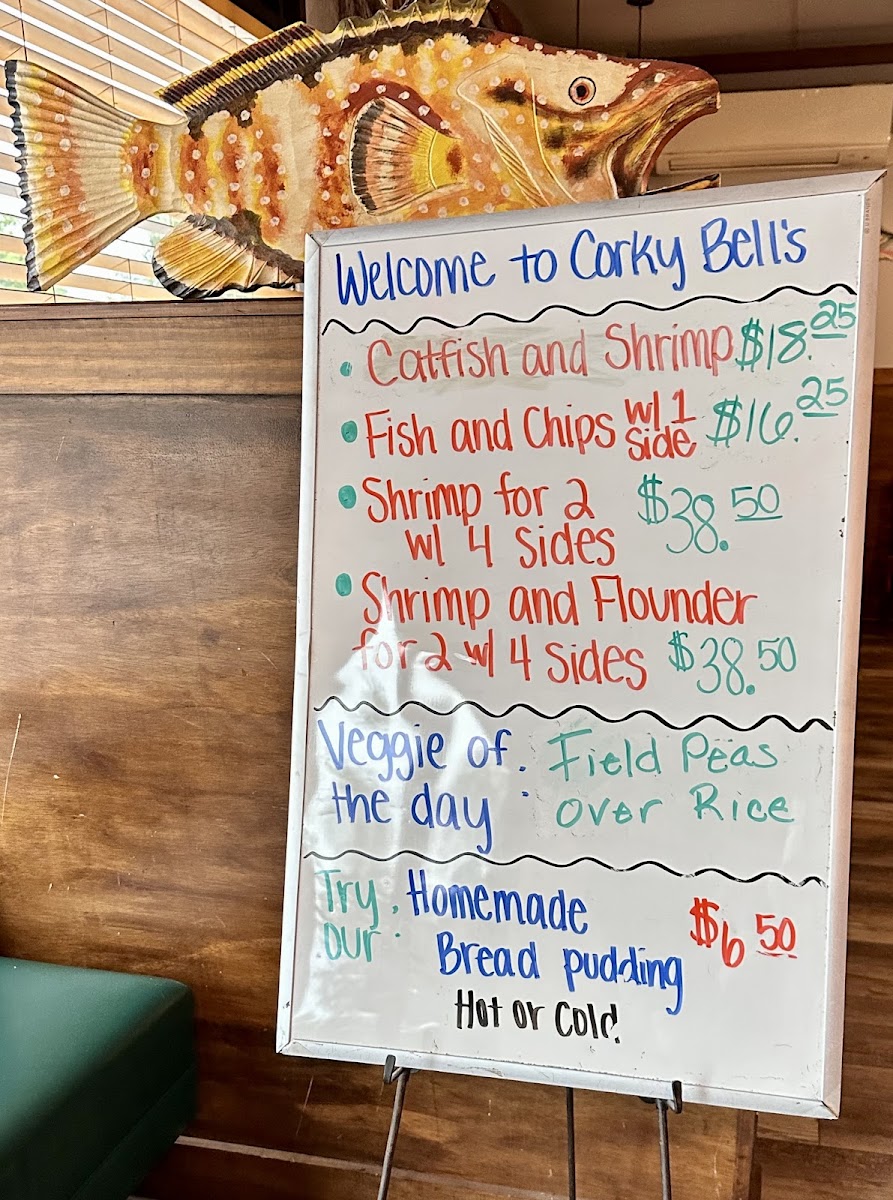 Welcome to Corky Bell's
• Catfish and Shrimp $18.25
• Fish and Chips w/ 1 side $16.25
• Shrimp for 2 $38.50
w/ 4 sides
• Shrimp and Flounder
for 2 w/ 4 sides $38.50
Veggie of Field Peas
the day : over Rice
Try Homemade $6.50
our : Bread pudding
Hot or Cold